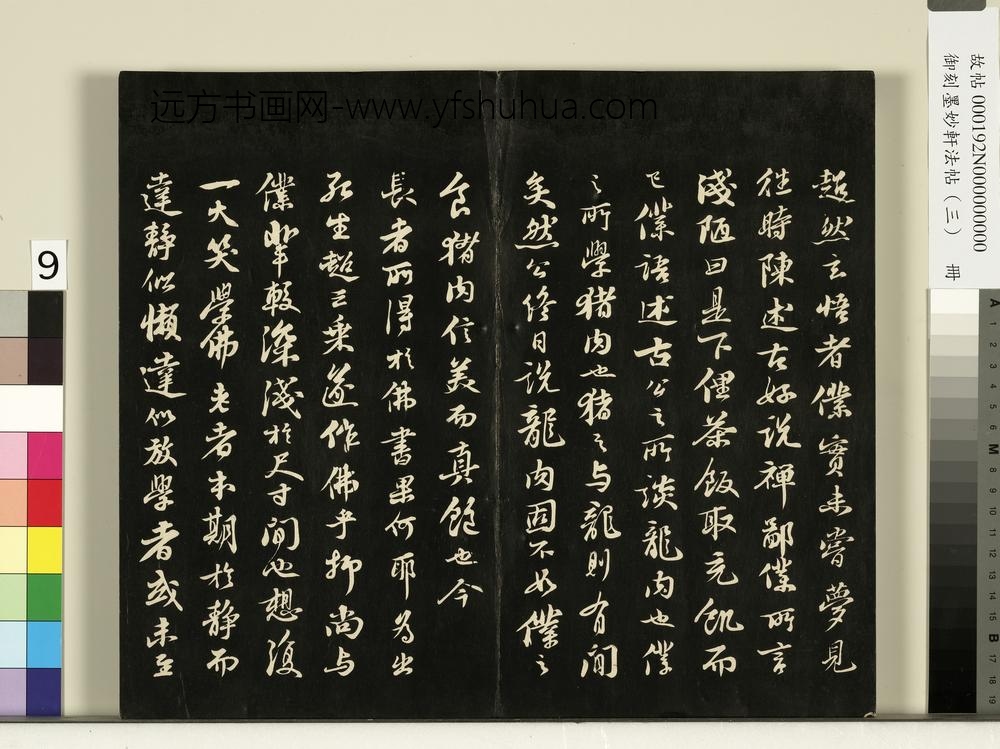 远方书画网-www.yfshuhua.com
故帖 000192N000000000
御刻墨妙軒法帖（三） 冊
超然玄悟者僕實未嘗夢見
往時陳述古好說禪鄙僕所言
淺陋曰是下俚茶飯取充飢而
已僕語述古公之所談龍肉也僕
之所學猪肉也猪之与龍則有間
矣然公終日說龍肉固不如僕之
食猪肉信美而真飽也今
長者所得於佛書果何耶為出
死生超三乘遂作佛乎抑尚与
僕輩較深淺於尺寸間也想復
一大笑學佛老者本期於靜而
達靜似懶達似放學者或未至
9
A 1 2 3 4 5 6 M 8 9 10 11 12 13 14 15 B 17 18 19